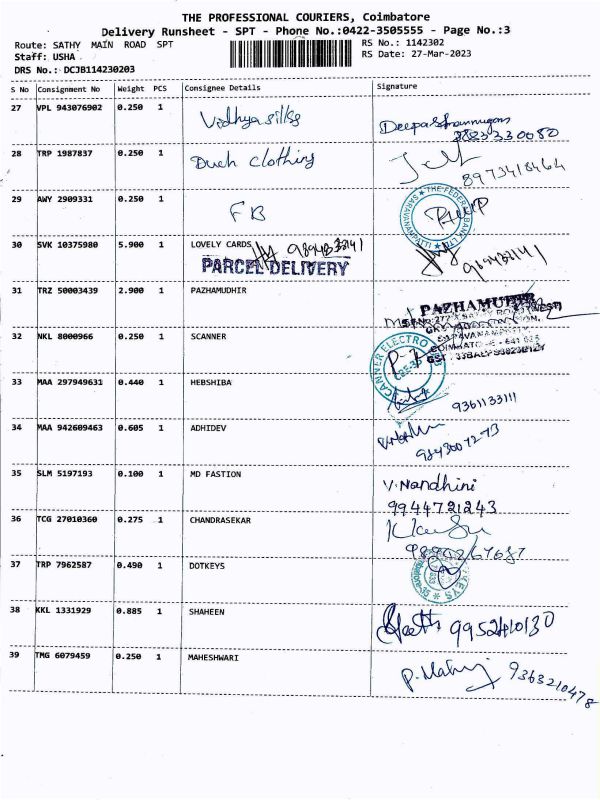 THE PROFESSIONAL COURIERS, Coimbatore
Delivery Runsheet - SPT - Phone No.:0422-3505555 - Page No.:3
Route: SATHY MAIN ROAD SPT
RS No.: 1142302
Staff: USHA
RS Date: 27-Mar-2023
DRS No.: DCJB114230203
S No Consignment No Weight PCS Consignee Details Signature
27 VPL 943076902 0.250 1 Vidhya silks
28 TRP 1987837 0.250 1 Duch clothing 8973418464
29 AWY 2909331 0.250 1 FB THE FEDERAL BANK LTD SARAVANAMPATTI
30 SVK 10375980 5.900 1 LOVELY CARDS
PARCEL DELIVERY
31 TRZ 50003439 2.900 1 PAZHAMUDHIR PAZHAMUDHIR
32 NKL 8000966 0.250 1 SCANNER SCANNER ELECTRO
33 MAA 297949631 0.440 1 HEBSHIBA 9361133111
34 MAA 942609463 0.605 1 ADHIDEV 9843007273
35 SLM 5197193 0.100 1 MD FASTION V.Nandhini
9944721243
36 TCG 27010360 0.275 1 CHANDRASEKAR
37 TRP 7962587 0.490 1 DOTKEYS
38 KKL 1331929 0.885 1 SHAHEEN 9952410130
39 TMG 6079459 0.250 1 MAHESHWARI 9363210478